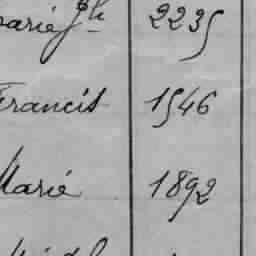 Marié Jh 2235
Francis 1546
Marié 1892